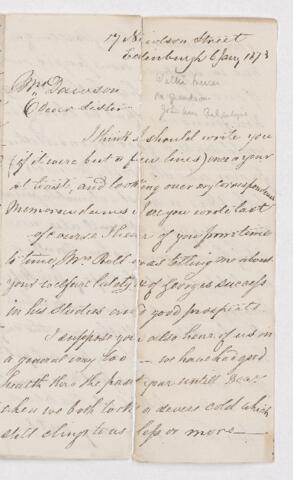 17 Nicolson Street
Edinburgh 6 Jany 1873
Mrs Dawson
Dear Sister
I think I should write you
(if it were but a few lines) once a year
at least, and looking over my correspondence
Memorandums I see you wrote last
of course I hear of you from time
to time, Mrs Bell was telling me about
your welfare lately & of Georges success
in his studies and good prospects
I suppose you also hear of us in
a general way too — we have had good
health thro the past year untill Decr
when we both took a severe cold which
still clings to us less or more —